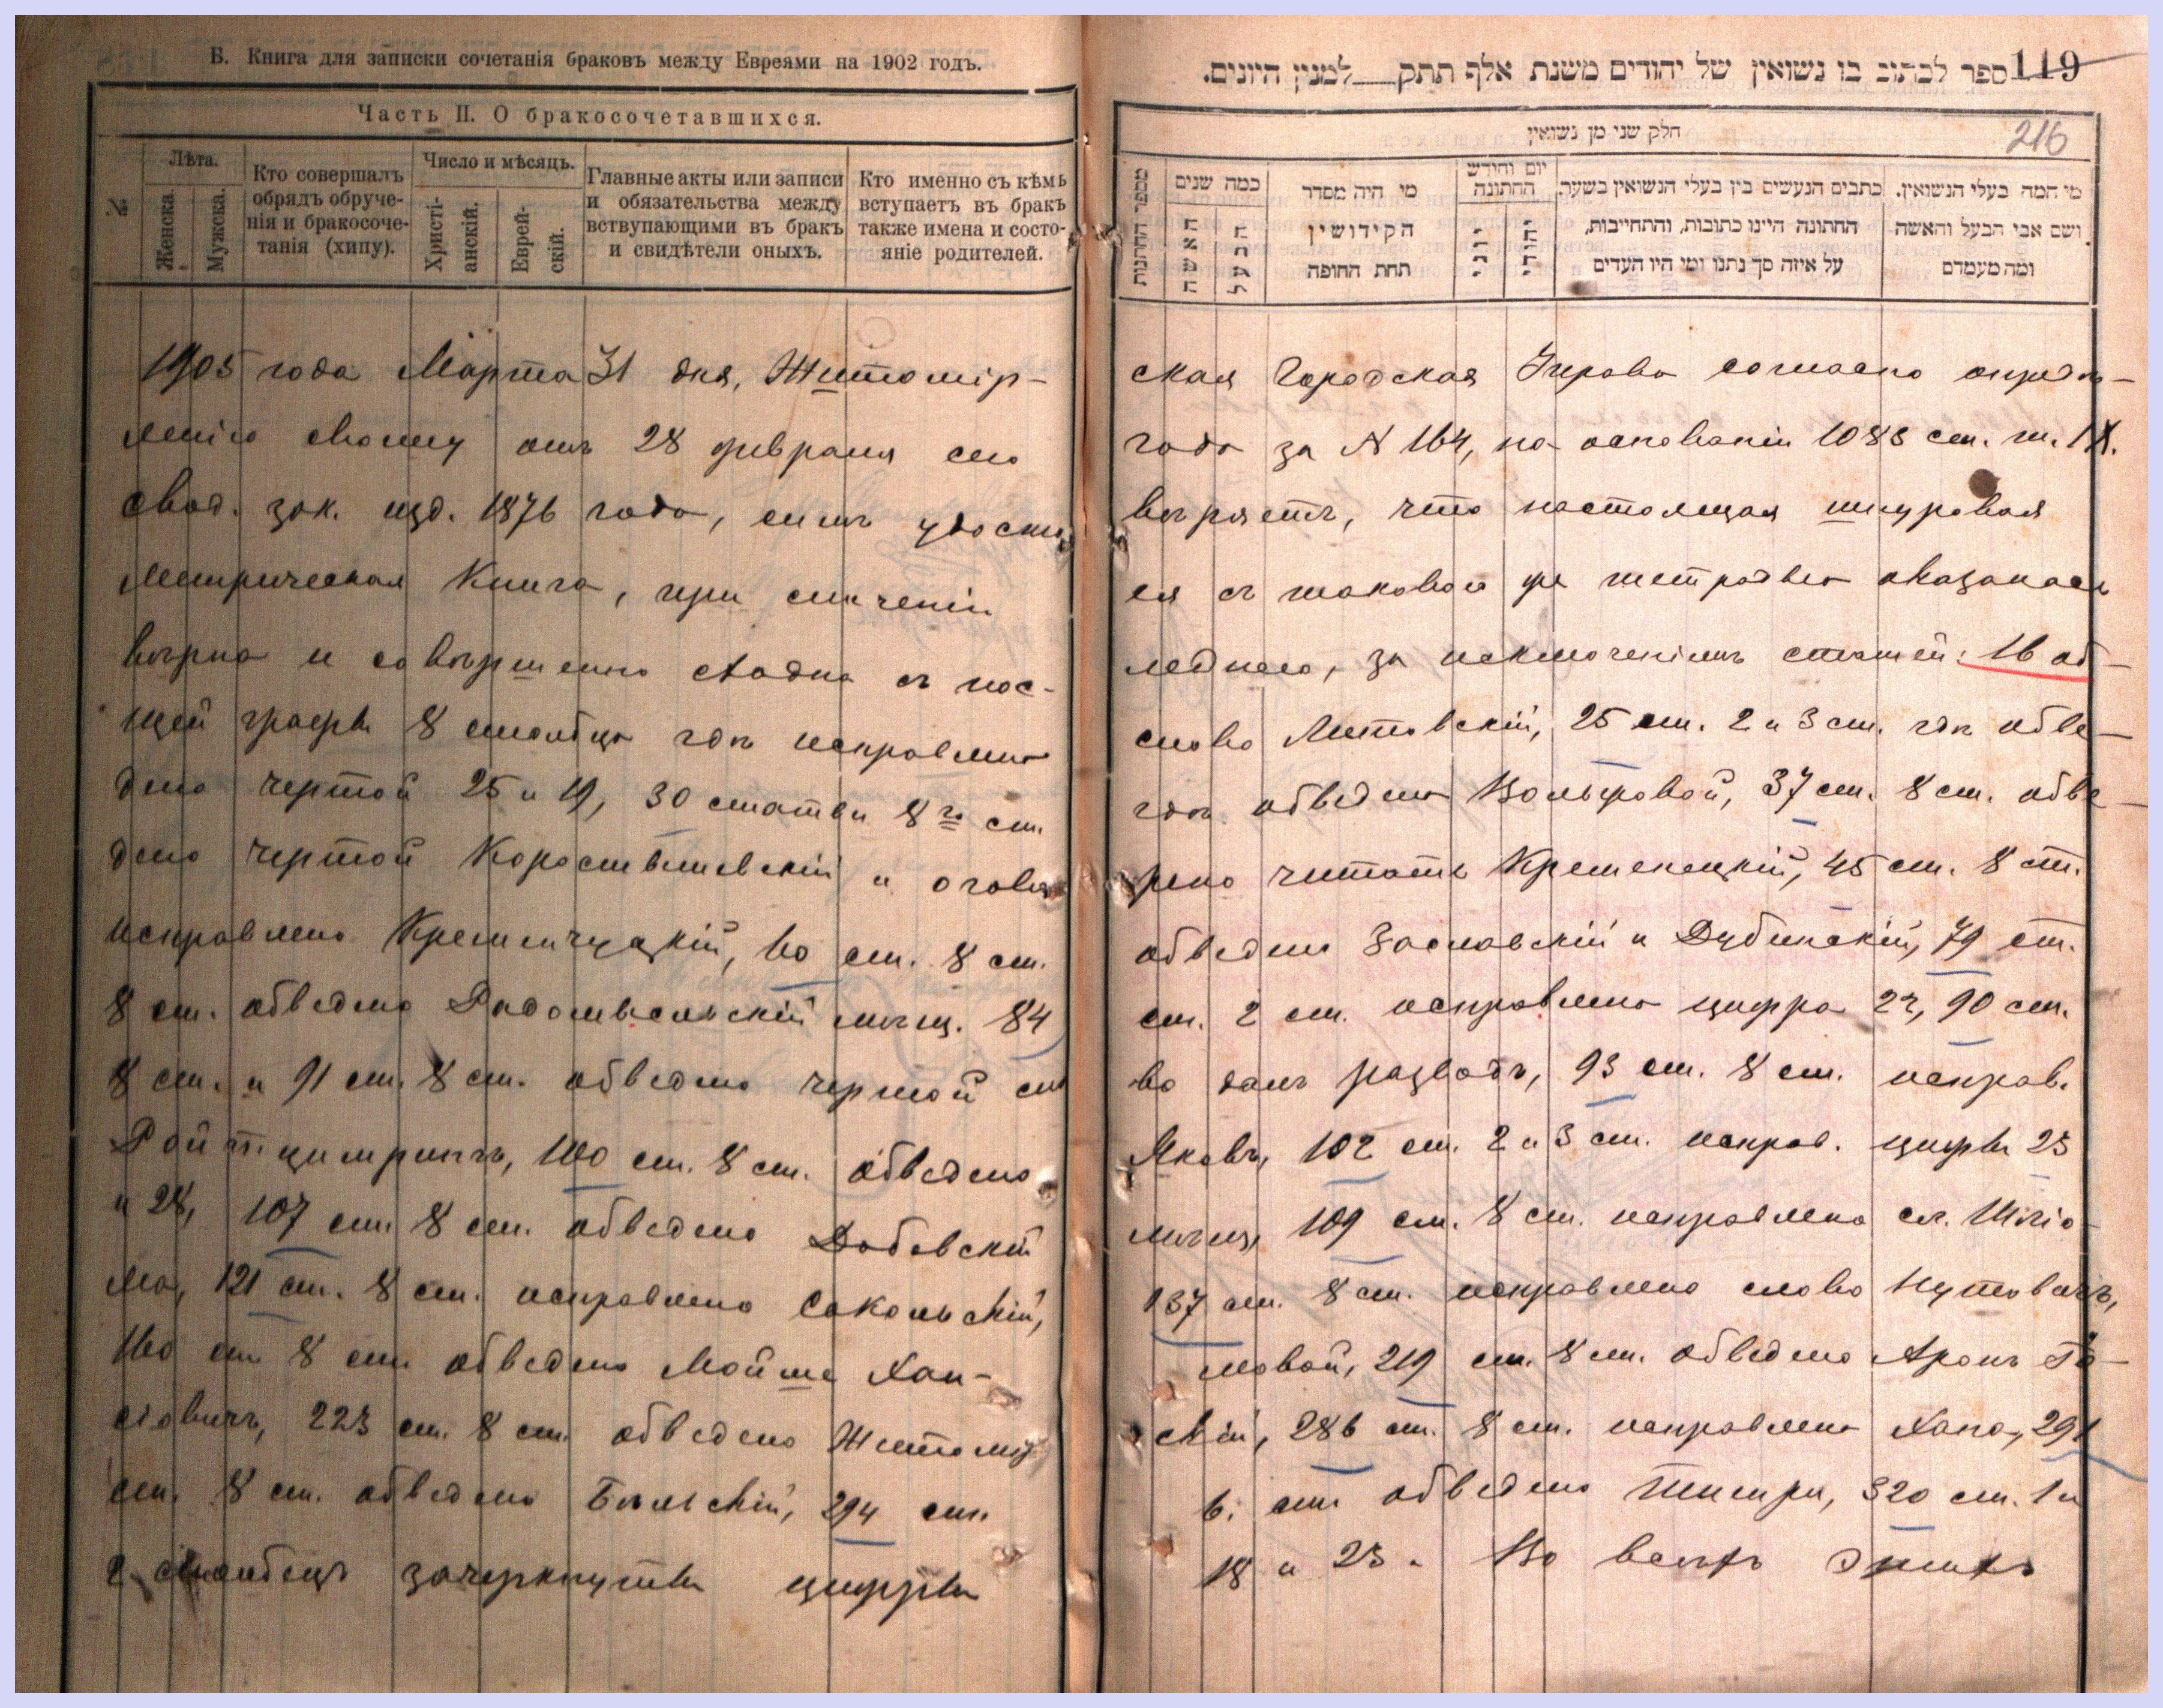 Б. Книга для записки сочетанія браковъ между Евреями на 1902 годъ.
Часть II. О бракосочетавшихся.
№
Лѣта.
Женска.
Мужска.
Кто совершалъ
обрядъ обруче-
нія и бракосоче-
танія (хипу).
Число и мѣсяцъ.
Христі-
анскій.
Еврей-
скій.
Главные акты или записи
и обязательства между
вствупающими въ бракъ
и свидѣтели оныхъ.
Кто именно съ кѣмъ
вступаетъ въ бракъ
также имена и состо-
яніе родителей.
119
ספר לכתוב בו נשואין של יהודים משנת אלף תתק למנין היונים.
216
חלק שני מן נשואין
מספר החתונות
כמה שנים
האשה
הבעל
מי היה מסדר
הקידושין
תחת החופה
יום וחודש
החתונה
יוני
יהודי
כתבים הנעשים בין בעלי הנשואין בשעה.
החתונה היינו כתובות, והתחייבות,
על איזה סך נתנו ומי היו העדים
מי המה בעלי הנשואין.
ושם אבי הבעל והאשה
ומה מעמדם
1905 года Марта 31 дня, Житомір-
ская Городская Управа согласно опредѣ-
ленію своему отъ 28 февраля сего
года за N 164, на основаніи 1083 ст. т. IX.
свод. зак. изд. 1876 года, симъ удосто
вѣряетъ, что настоящая шнуровая
Метрическая Книга, при сличеніи
ея съ таковою же тетрадью оказалась
вѣрна и совершенно сходна съ пос-
леднею, за исключеніемъ статей: 16 об-
щей графы 8 столбца гдѣ исправлено
слово Литовскій, 25 ст. 2 и 3 ст. гдѣ обве-
дено чертой 25 и 19, 30 статьи 8го ст.
гдѣ обведено Вольфовой, 37 ст. 8 ст. обве-
дено чертой Коростышевскій и огово
рено читать Кременецкій, 45 ст. 8 ст.
исправлено Кременчуцкій, 60 ст. 8 ст.
обведено Заславскій и Дубинскій, 79 ст.
8 ст. обведено Радомысльскій мѣщ. 84
ст. 2 ст. исправлена цифра 22, 90 ст.
8 ст. и 91 ст. 8 ст. обведено чертой сло
во далъ разводъ, 93 ст. 8 ст. исправ.
100 ст. 8 ст. обведено
Яковъ, 102 ст. 2 и 3 ст. исправ. цифры 23
и 28, 107 ст. 8 ст. обведено
мѣщ, 109 ст. 8 ст. исправлено сл. Шліо-
ма, 121 ст. 8 ст. исправлено Сокольскій,
137 ст. 8 ст. исправлено слово
160 ст 8 ст. обведено Мойше Хаи-
мовой, 219 ст. 8 ст. обведено Аронъ Іо-
сіовичъ, 223 ст. 8 ст. обведено Житомір
скій, 286 ст. 8 ст. исправлено Хана, 291
ст. 8 ст. обведено Бѣльскій, 294 ст.
6. ст. обведено Тишри, 320 ст. 1 и
2 столбецъ зачеркнуты цифры
18 и 23. Во всемъ